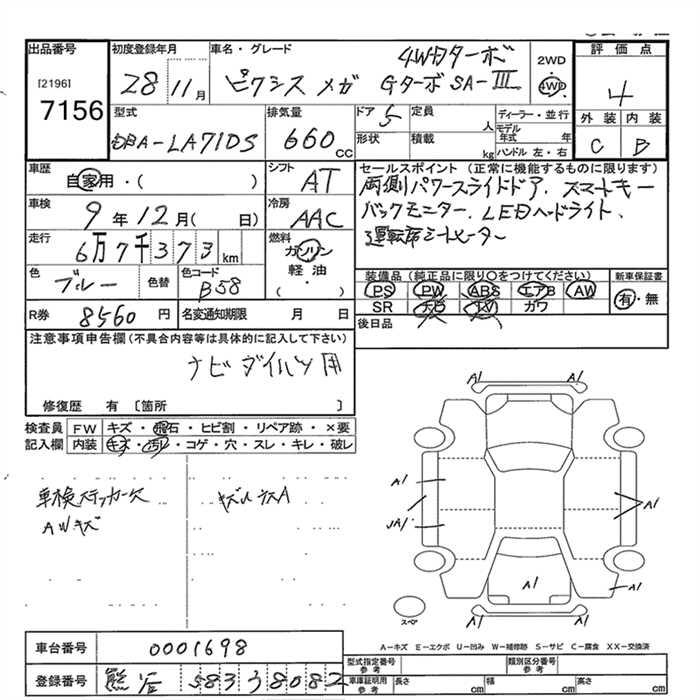 出品番号
[2196]
7156
初度登録年月
28 11月
車名・グレード
4WDターボ
ピクシス メガ Gターボ SA-Ⅲ
2WD
・
4WD
評価点
4
外装 内装
C B
型式
DBA-LA710S
排気量
660 cc
ドア 5
定員 人
形状
積載 kg
ディーラー・並行
モデル年式 年
ハンドル 左・右
車歴
自家用・( )
シフト
AT
車検
9年12月( 日)
冷房
AAC
走行
6万7千373km
燃料
ガソリン
軽油
( ・ )
色
ブルー
色替
色コード
B58
R券 8560円
名変通知期限 月 日
セールスポイント (正常に機能するものに限ります)
両側パワースライドドア、スマートキー
バックモニター、LEDヘッドライト、
運転席シートヒーター
装備品 (純正品に限り○をつけてください)
PS PW ABS エアB AW
SR ナビ TV ガワ
新車保証書
有・無
後日品
注意事項申告欄 (不具合内容等は具体的に記入して下さい)
ナビ ダイハツ用
修復歴 有 〔箇所 〕
検査員記入欄
FW キズ・飛石・ヒビ割・リペア跡・×要
内装 キズ・汚レ・コゲ・穴・スレ・キレ・破レ
車検ステッカー欠
AWキズ
A1 A1
A1
A1
A1
A1
A1
スペア
A-キズ E-エクボ U-凹み W-補修跡 S-サビ C-腐食 XX-交換済
車台番号 0001698
登録番号 熊谷 583 3 8082
型式指定番号 参考
類別区分番号 参考
車庫証明用 参考
長さ cm
幅 cm
高さ cm